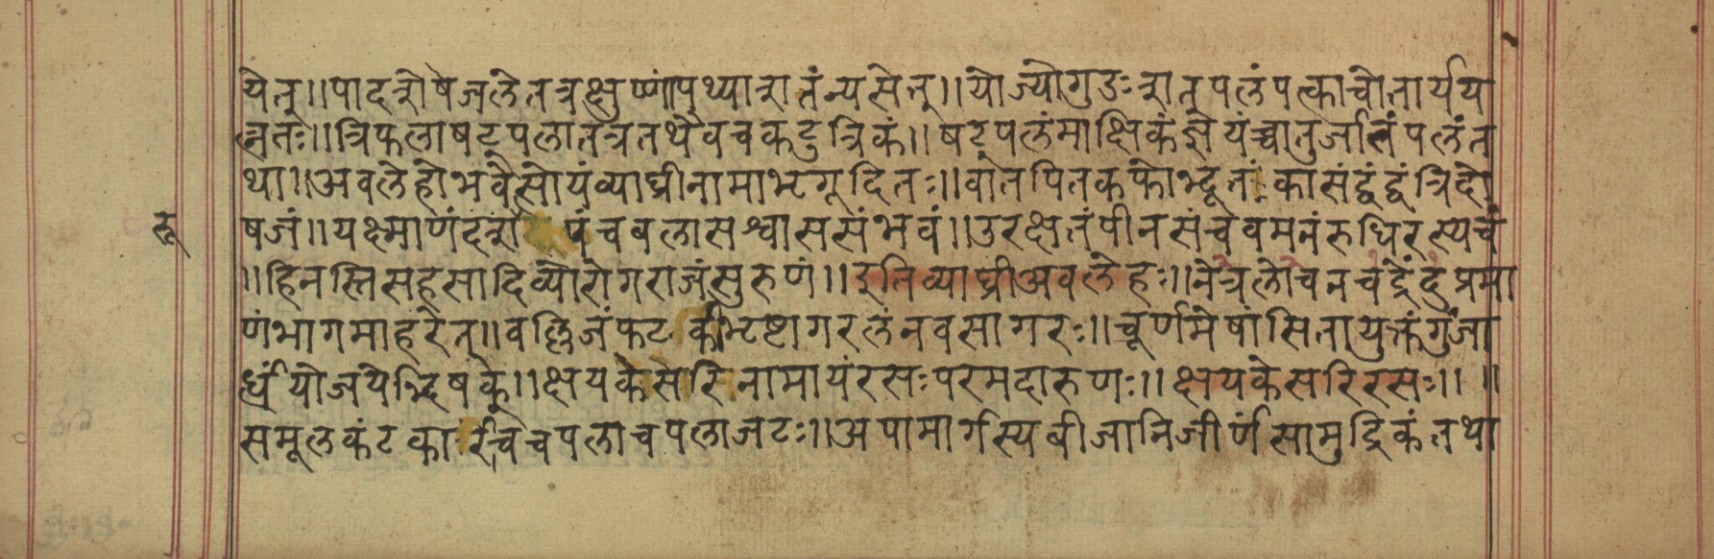 येत्॥पादशेषेजलेतत्रक्षुण्णांपथ्याशतंन्यसेत्॥योज्योगुडःशतपलंपत्काचोतार्यय
त्नतः॥त्रिफलाषट्पलातत्रतथैवचकटुत्रिकं॥षट्पलंमाक्षिकंज्ञेयंच्चातुर्जातंपलंत
था॥अवलेहोभवेत्सोयंव्याघ्रीनामाभृगूदितः॥वातपितकफोद्भूतां कासंद्वंद्वंत्रिदो
रू
षजं॥यक्ष्माणंदशरूपंचबलासश्वाससंभवं॥उरक्षतंपीनसंचवमनंरुधिरस्यच
॥हिनस्तिसहसादिव्योरोगराजंसुरुणं॥इतिव्याघ्रीअवलेहः॥नेत्रलोचनचंद्रेंदुप्रमा
णंभागमाहरेत्॥वह्निजंफटकीभृष्टागरलंनवसागरः॥चूर्णमेषांसितायुक्तंगुंजा
र्धंयोजयेद्भिषक्॥क्षयकेसरिनामायंरसःपरमदारुणः॥क्षयकेसरिरसः॥ ॥
समूलकंटकारींचचपलाचपलाजटः॥अपामार्गस्यबीजानिजीर्णसामुद्रिकंतथा